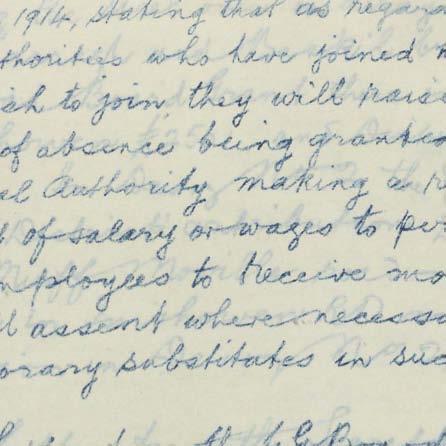 1914, stating that as regard
thorities who have joined
sh to join they will raise
of absence being granted
al Authority making a
of salary or wages to per
mployees to receive mo
l assent where necessa
orary substitutes in suc